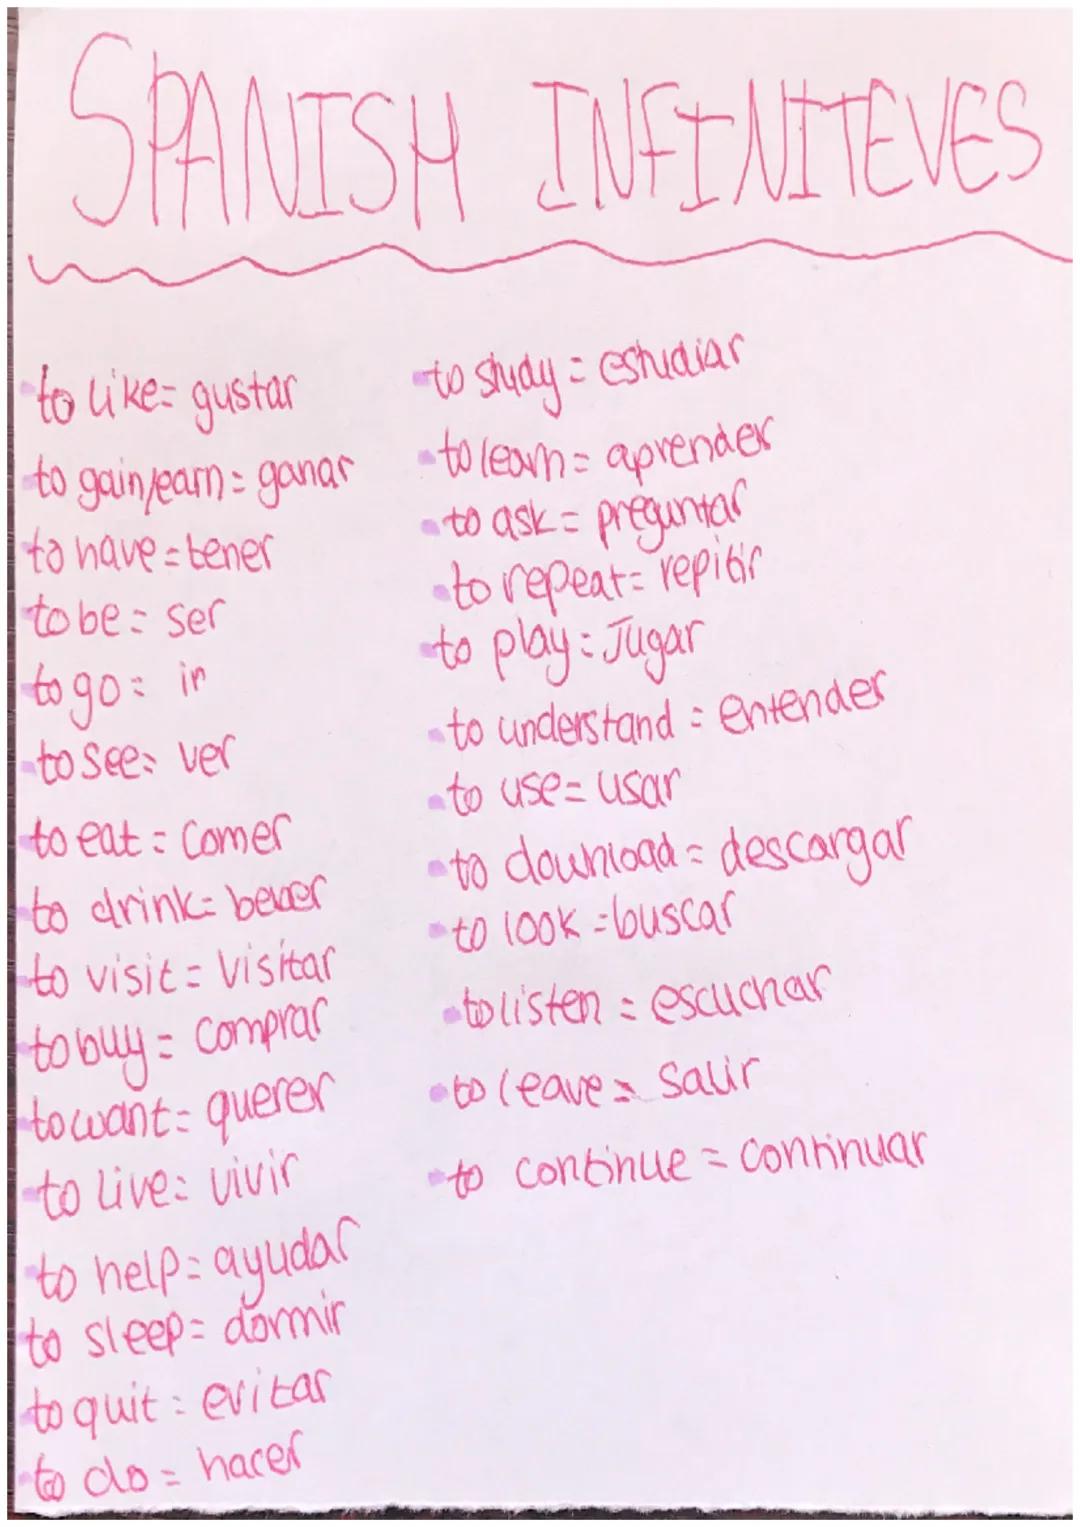 SPANISH INFINITEVES
to like= gustar
to gain/earn= ganar
to have=tener
to be= ser
to go= ir
to see= ver
to eat= comer
to drink= bever
to visit= visitar
to buy= comprar
to want= querer
to live= vivir
to help= ayudar
to sleep= dormir
to quit= evitar
to do= hacer
to study= estudiar
to learn= aprender
to ask= preguntar
to repeat= repitir
to play= Jugar
to understand= entender
to use= usar
to download= descargar
to look=buscar
to listen= escuchar
to leave= salir
to continue= continuar